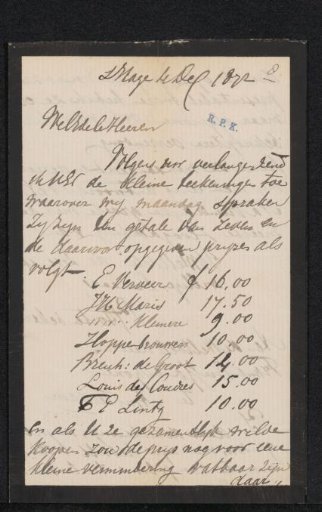 s'Hage 4 Dec 1872
8
R.P.K.
WelEdele Heeren
Volgens uw verlangen zend
ik UEd de kleine teekeningen toe
waarover wij maandag spraken
Zij zijn ten getale van zeven en
de daarvoor opgegeven prijzen als
volgt
E Verveer f 16.00
JH Maris 17.50
kleinere 9.00
Hoppenbrouwers 10.00
Breuh: de Groot 12.00
Louis de Coudres 15.00
E Lintz 10.00
En als U ze gezamenlijk wilde
koopen zou de prijs nog voor eene
kleine vermindering vatbaar zijn
daar